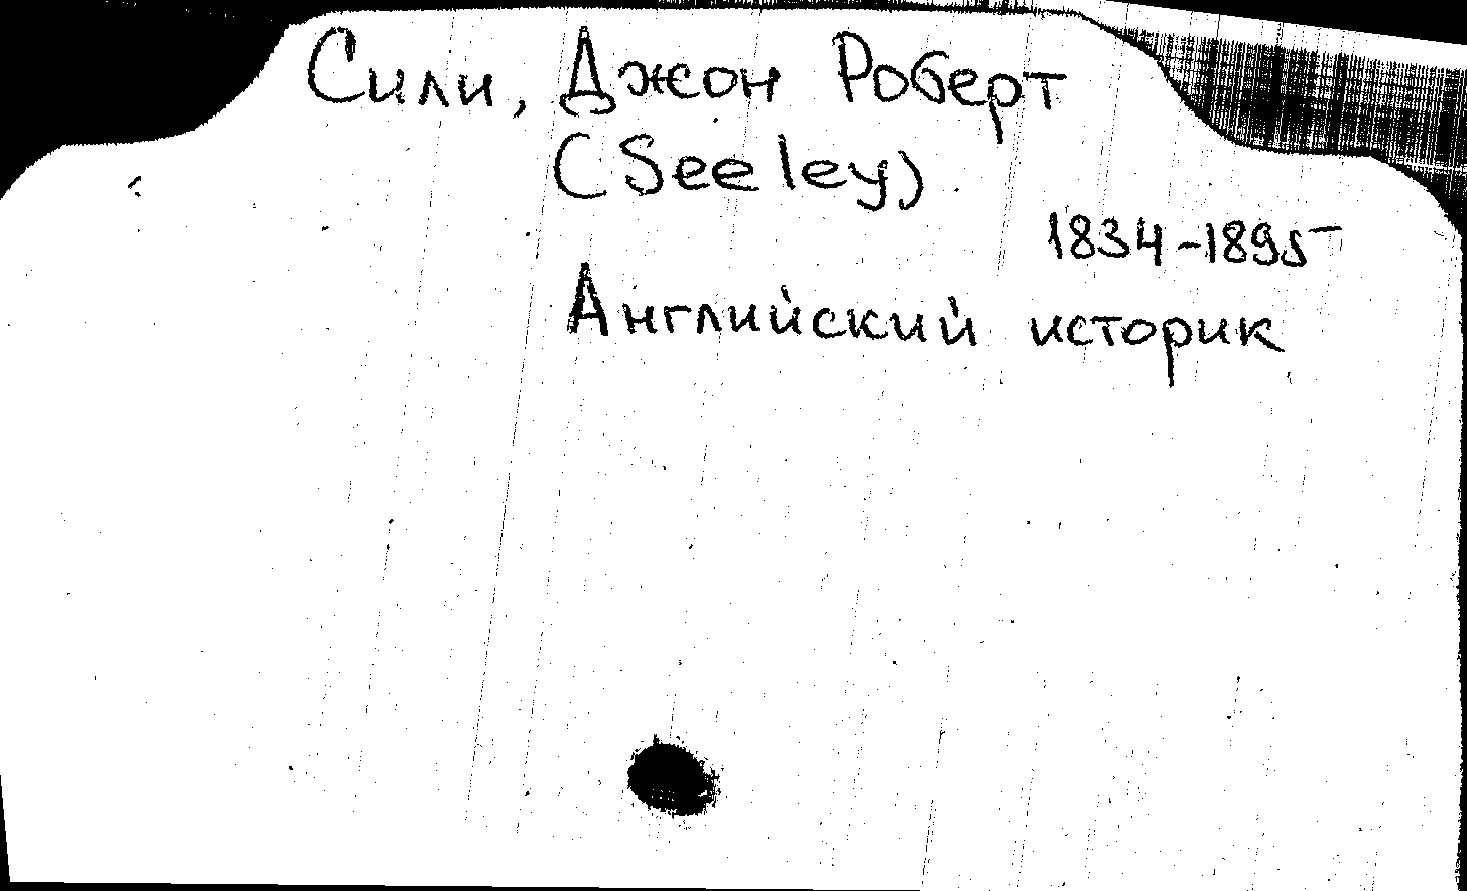 Сили, Джон Роберт
(Seeley)
1834-1895
Английский историк